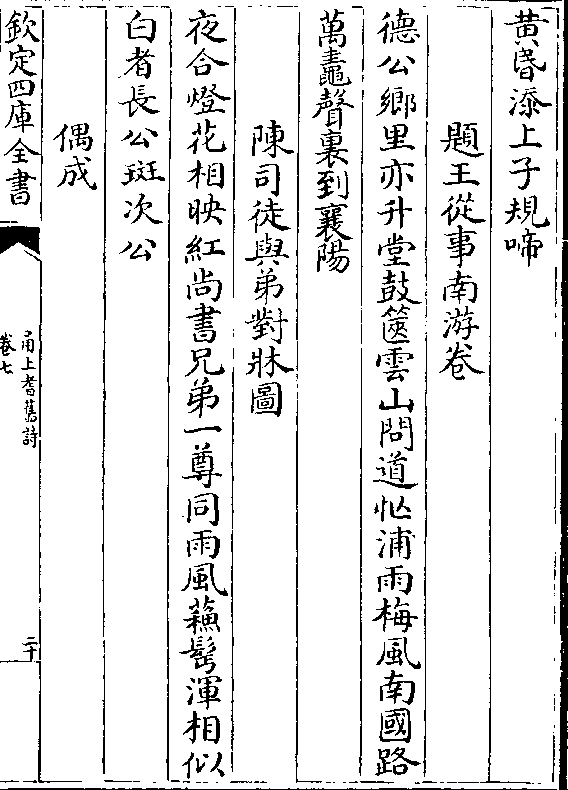 黄昏添上子規啼
題王從事南游卷
德公鄉里亦升堂鼓篋雲山問道忙浦雨梅風南國路
萬鼉聲裏到襄陽
陳司徒與弟對牀圖
夜合燈花相映紅尚書兄弟一尊同雨風蘓髩渾相似
白者長公斑次公
偶成
欽定四庫全書
甬上耆舊詩
卷七
二十